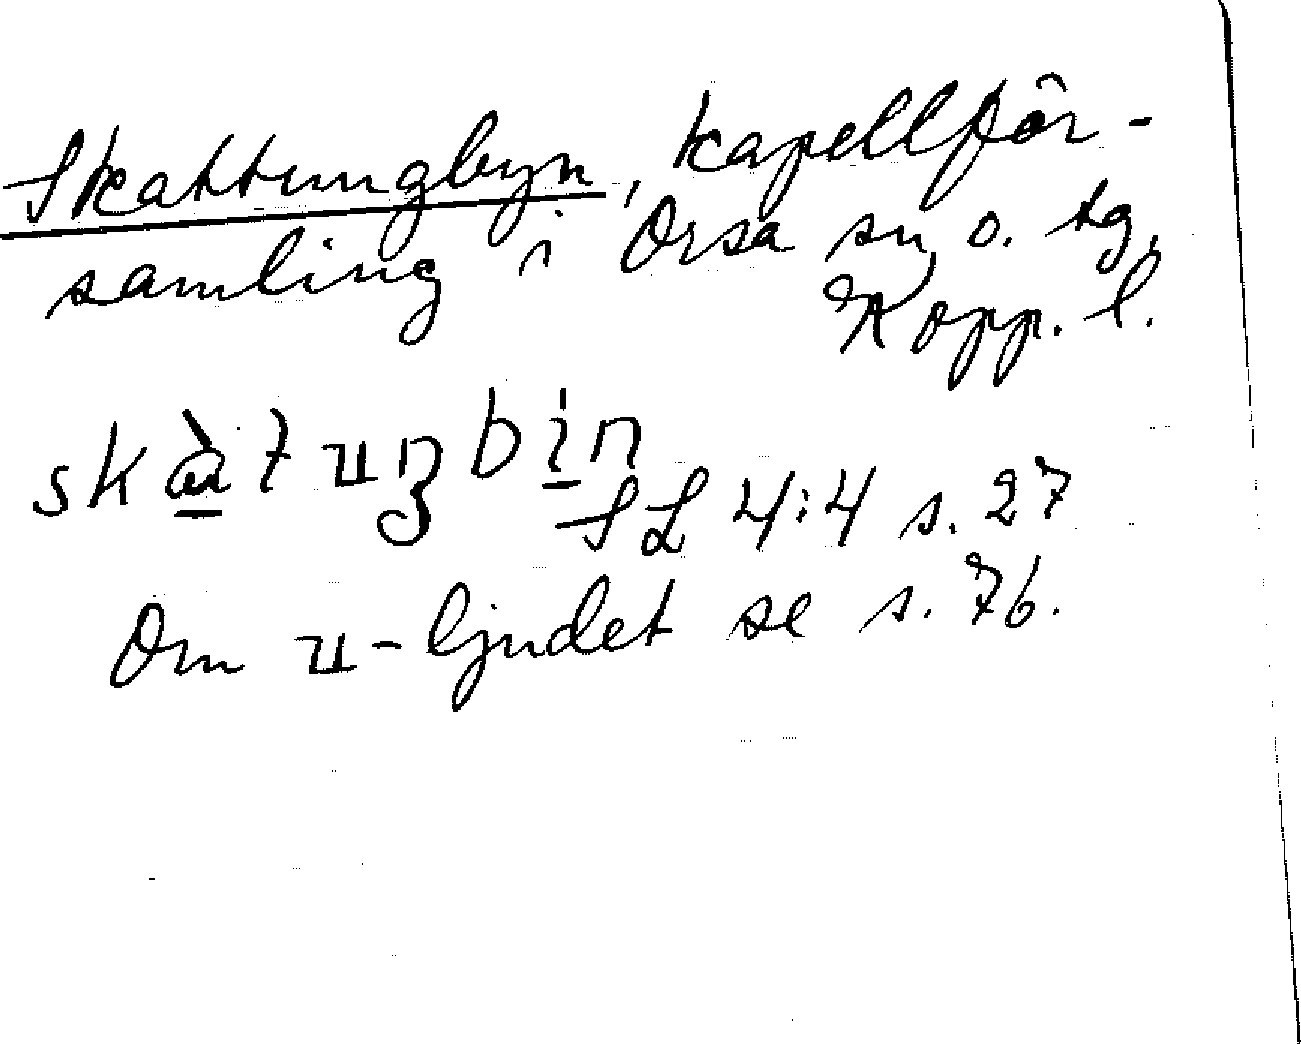 Skattungbyn, kapellför-
samling i Orsa sn o. tg,
Kopp. l.
skàtuŋbin
SL 4:4 s. 27
Om u-ljudet se s. 76.